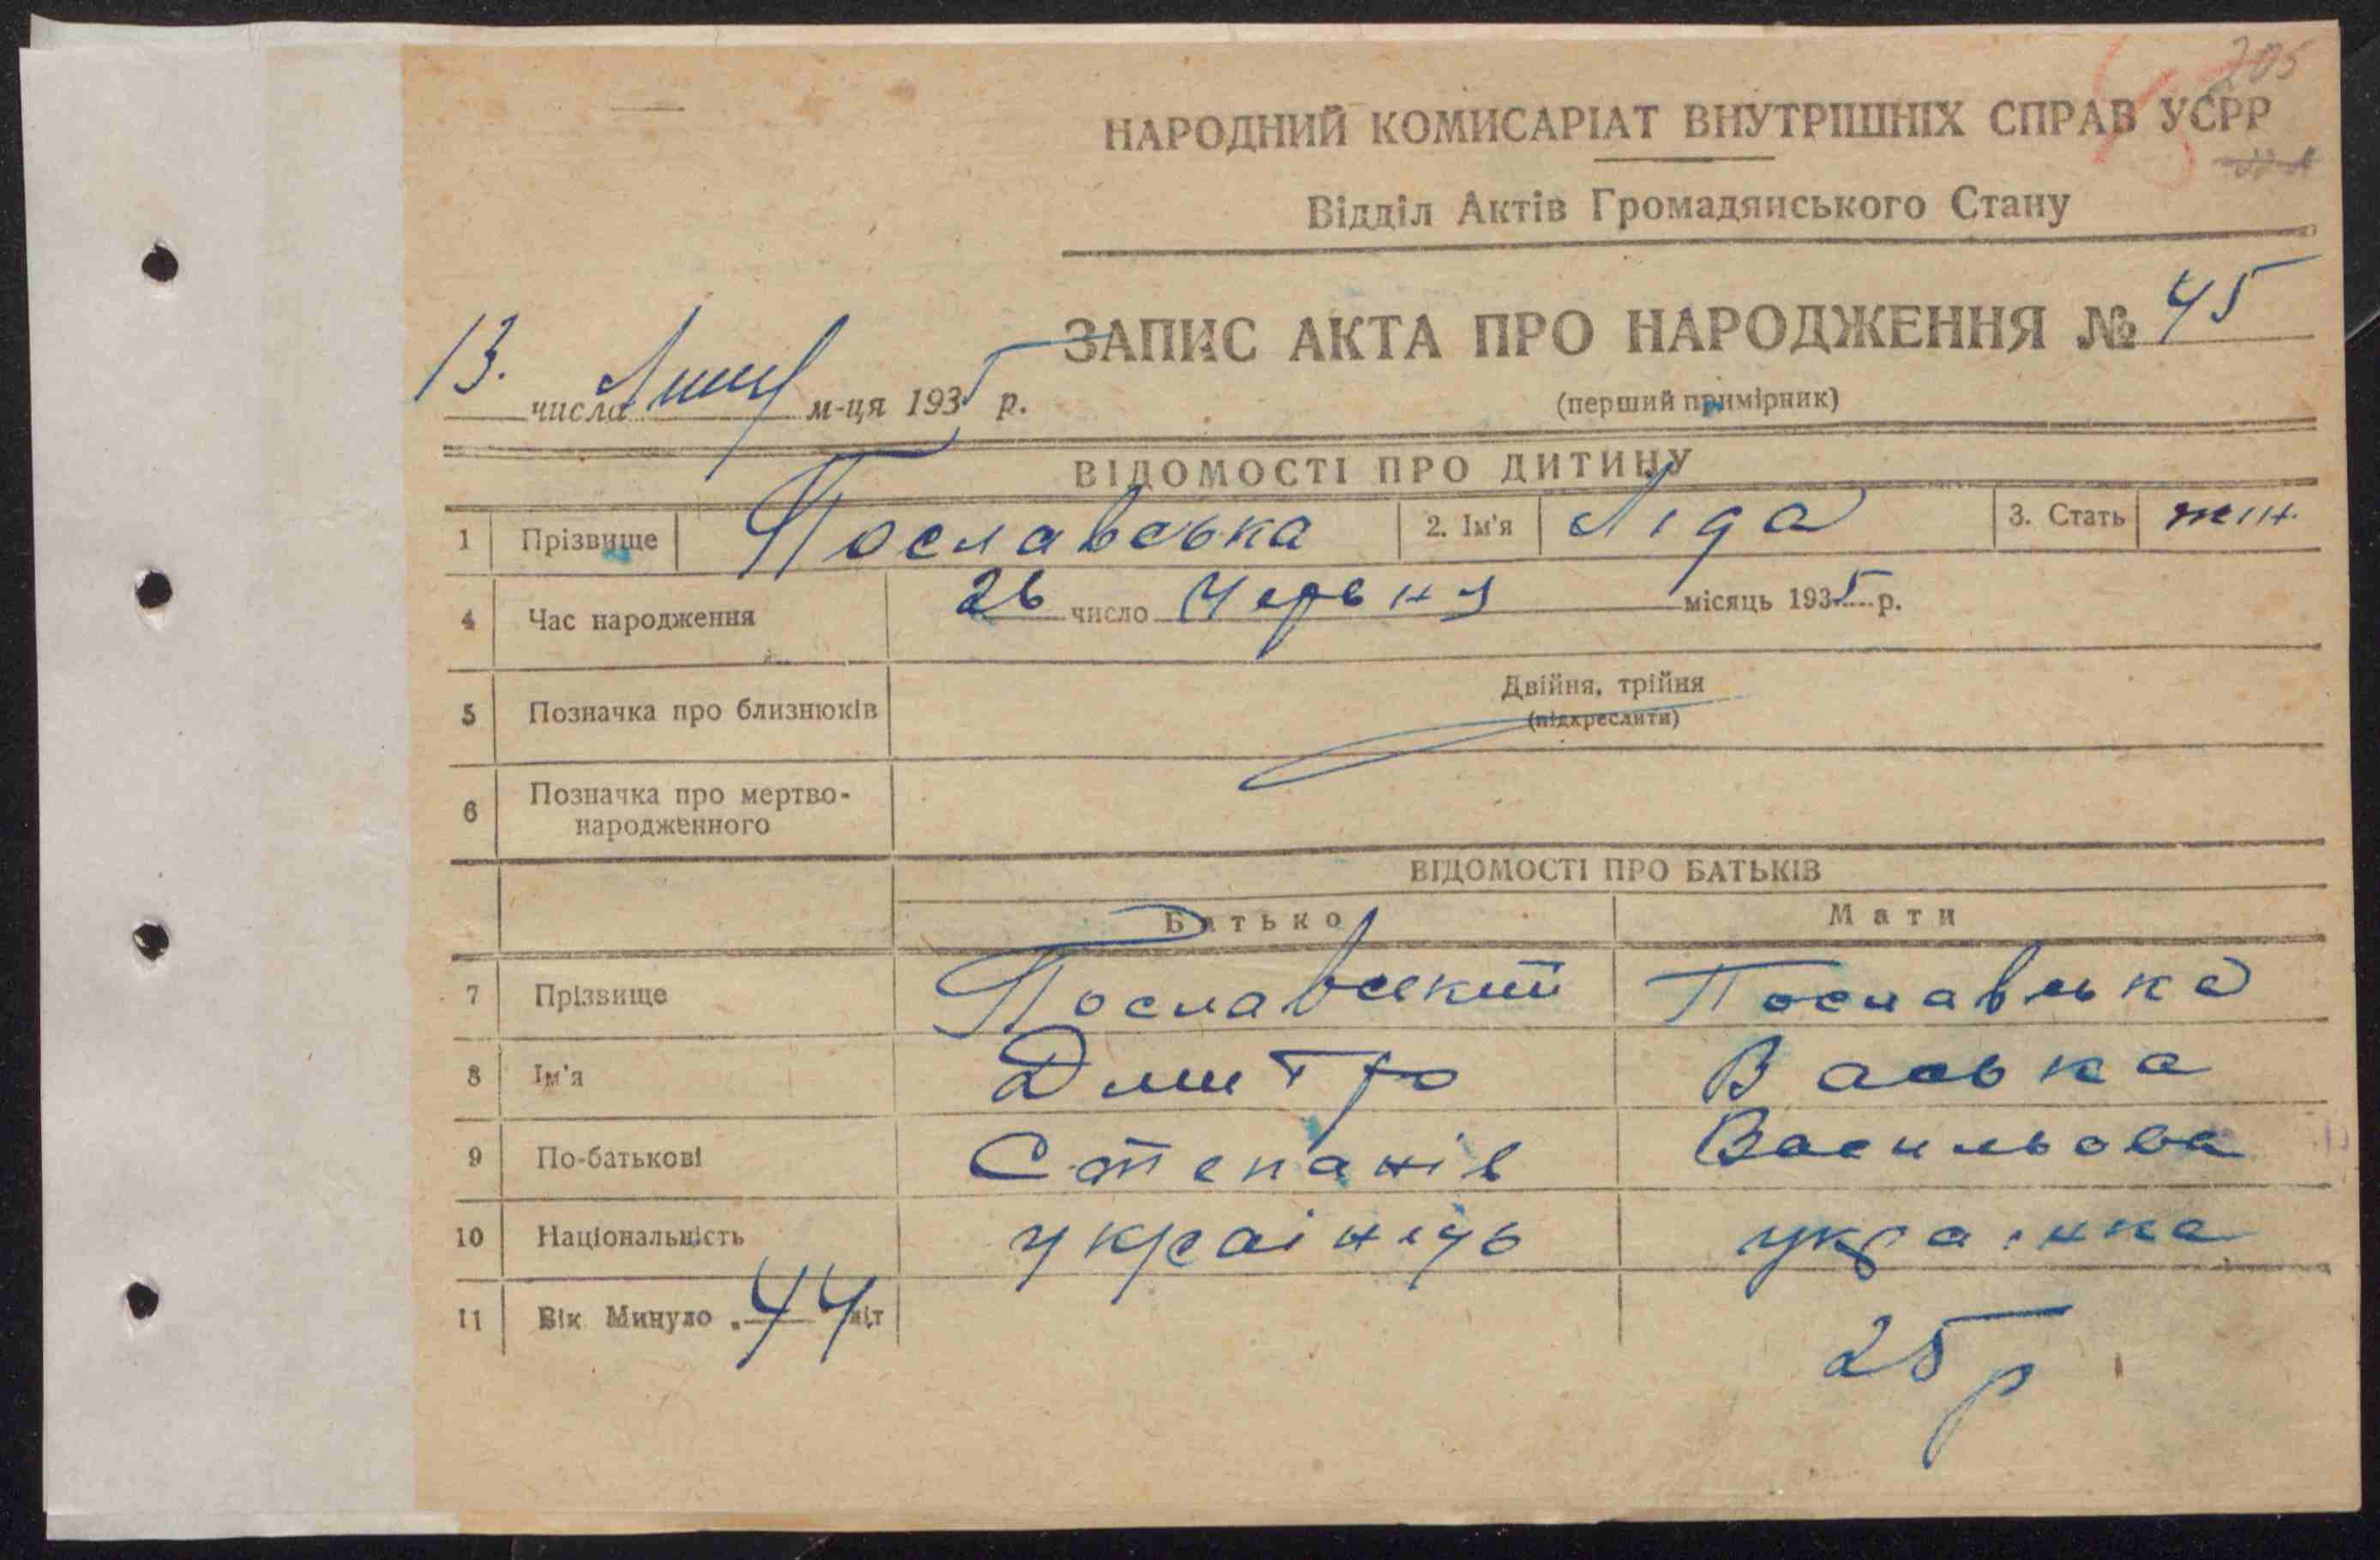 205
НАРОДНИЙ КОМИСАРІАТ ВНУТРІШНІХ СПРАВ УСРР
Відділ Актів Громадянського Стану
ЗАПИС АКТА ПРО НАРОДЖЕННЯ № 45
(перший примірник)
13. числа Липця м-ця 1935 р.
ВІДОМОСТІ ПРО ДИТИНУ
1 Прізвище Пославська 2. Ім'я Ліда 3. Стать жін.
4 Час народження 26 число Червня місяць 1935 р.
5 Позначка про близнюків Двійня, трійня
(підкреслити)
6 Позначка про мертво-
народженного
ВІДОМОСТІ ПРО БАТЬКІВ
Батько Мати
7 Прізвище Пославский Пославська
8 Ім'я Дмитро Васька
9 По-батькові Степанів Васильова
10 Національність українець українка
11 Вік Минуло 44 літ 25 р